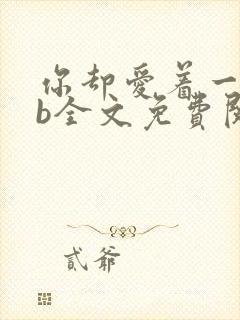 你却爱着一
b全文免费阅
貳爺